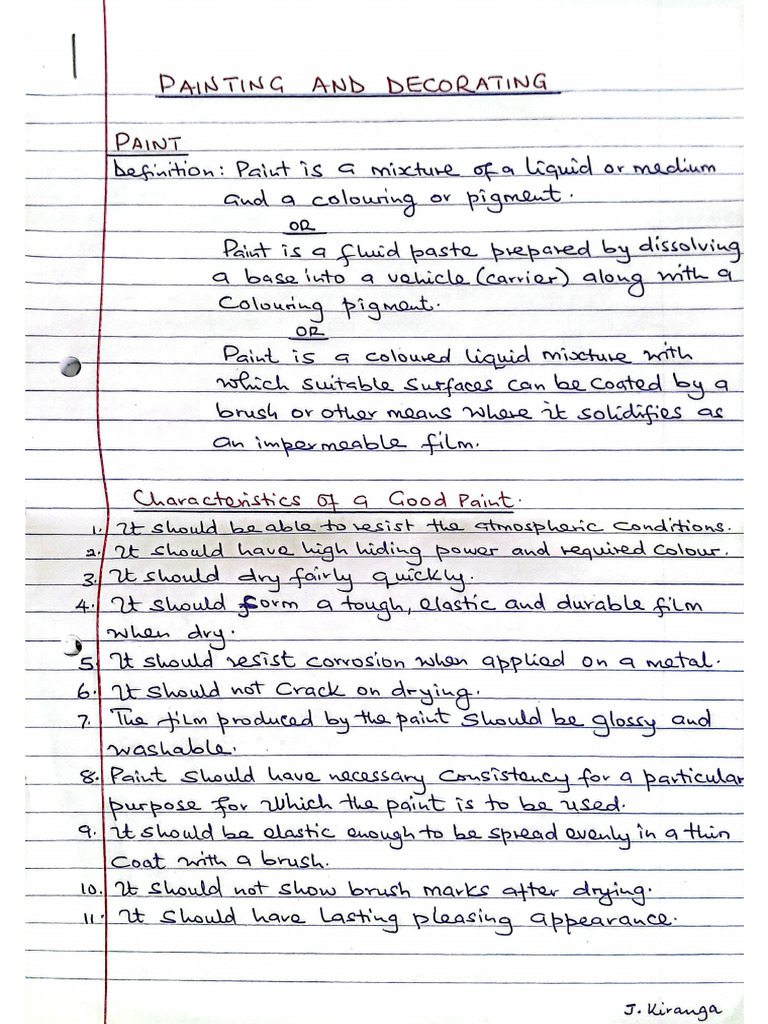 1
PAINTING AND DECORATING
PAINT
Definition: Paint is a mixture of a liquid or medium
and a colouring or pigment.
OR
Paint is a fluid paste prepared by dissolving
a base into a vehicle (carrier) along with a
Colouring pigment.
OR
Paint is a coloured liquid mixture with
which suitable surfaces can be coated by a
brush or other means where it solidifies as
an impermeable film.
Characteristics of a Good Paint.
1. It should be able to resist the atmospheric conditions.
2. It should have high hiding power and required colour.
3. It should dry fairly quickly.
4. It should form a tough, elastic and durable film
when dry.
5. It should resist corrosion when applied on a metal.
6. It should not crack on drying.
7. The film produced by the paint should be glossy and
washable.
8. Paint should have necessary consistency for a particular
purpose for which the paint is to be used.
9. It should be elastic enough to be spread evenly in a thin
coat with a brush.
10. It should not show brush marks after drying.
11. It should have lasting pleasing appearance.
J. Kiranga